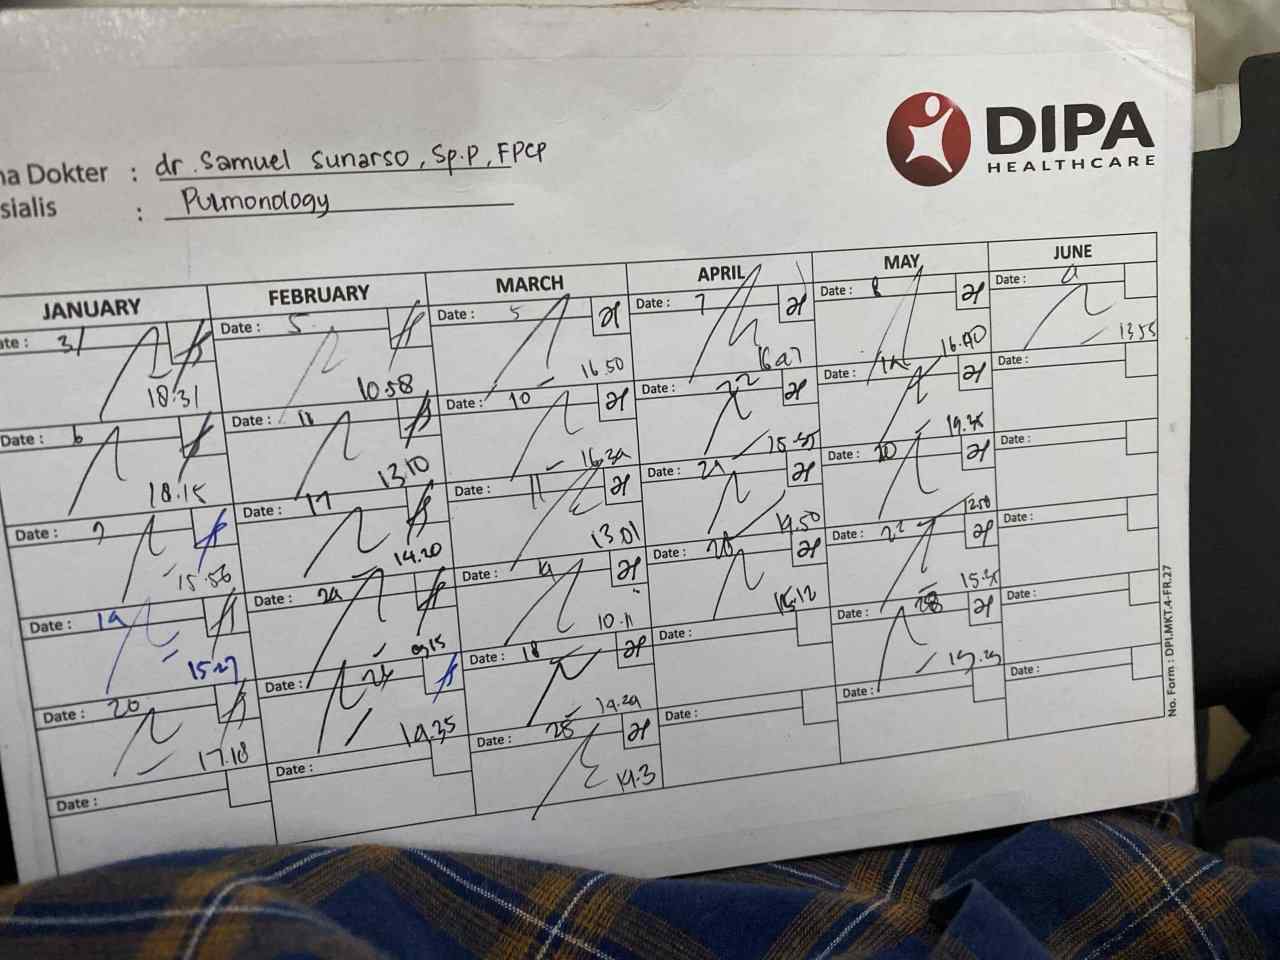 DIPA
HEALTHCARE
na Dokter : dr. Samuel Sunarso, Sp.P, FPCP
sialis : Pulmonology
JANUARY FEBRUARY MARCH APRIL MAY JUNE
ate : 31 Date : 5 Date : 5 Date : 7 Date : 8 Date :
18.31 10.58 16.50 13.55
Date : 6 Date : 11 Date : 10 Date : 22 Date : Date :
18.15 13.10
Date : 7 Date : 17 Date : 11 Date : Date : 20 Date :
15.56 14.20 13.01 14.50 12.50
Date : Date : Date : Date : 28 Date : 22 Date :
15.27 09.15 10.11 15.12
Date : 20 Date : Date : 18 Date : Date : 28 Date :
17.18 19.35
Date : Date : Date : 25 Date : Date : Date :
14.3
No. Form : DPI.MKT.4-FR.27